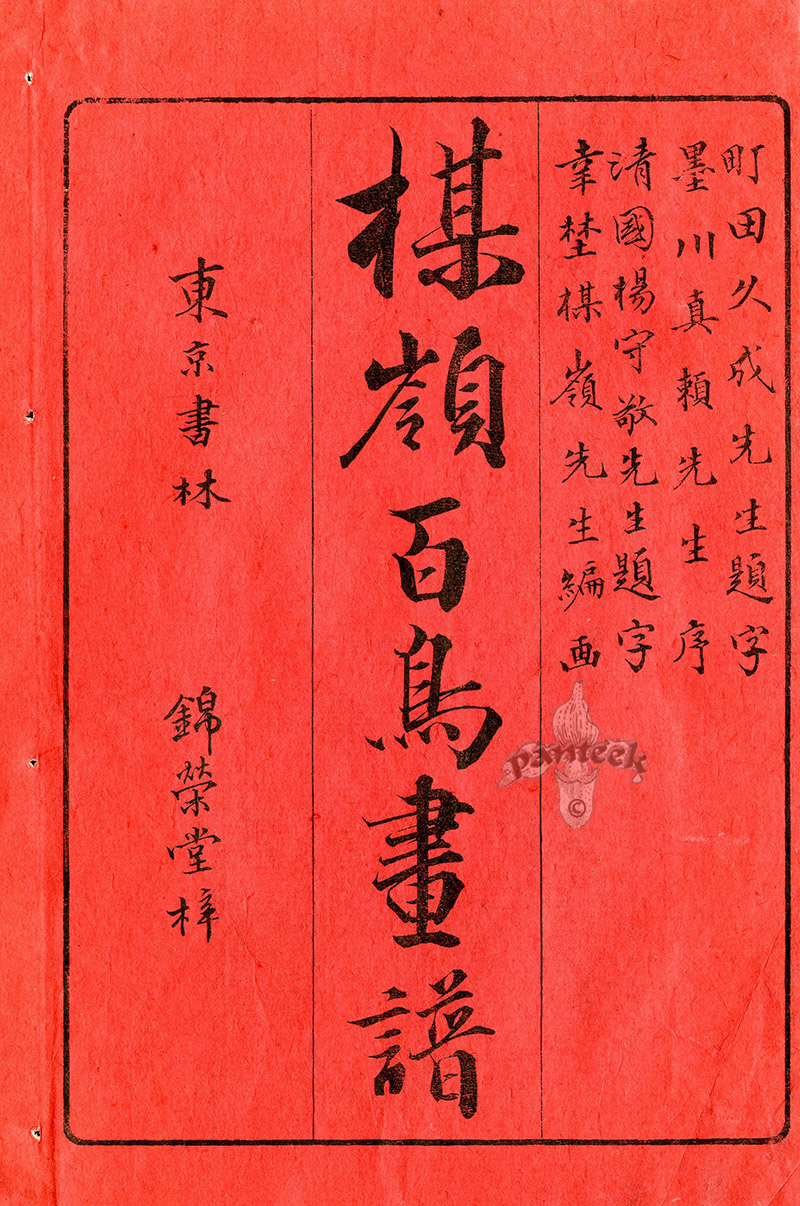 町田久成先生題字
墨川真頼先生序
清國楊守敬先生題字
幸埜楳嶺先生編画
楳嶺百鳥畫譜
東京書林 錦榮堂梓
panteek
©